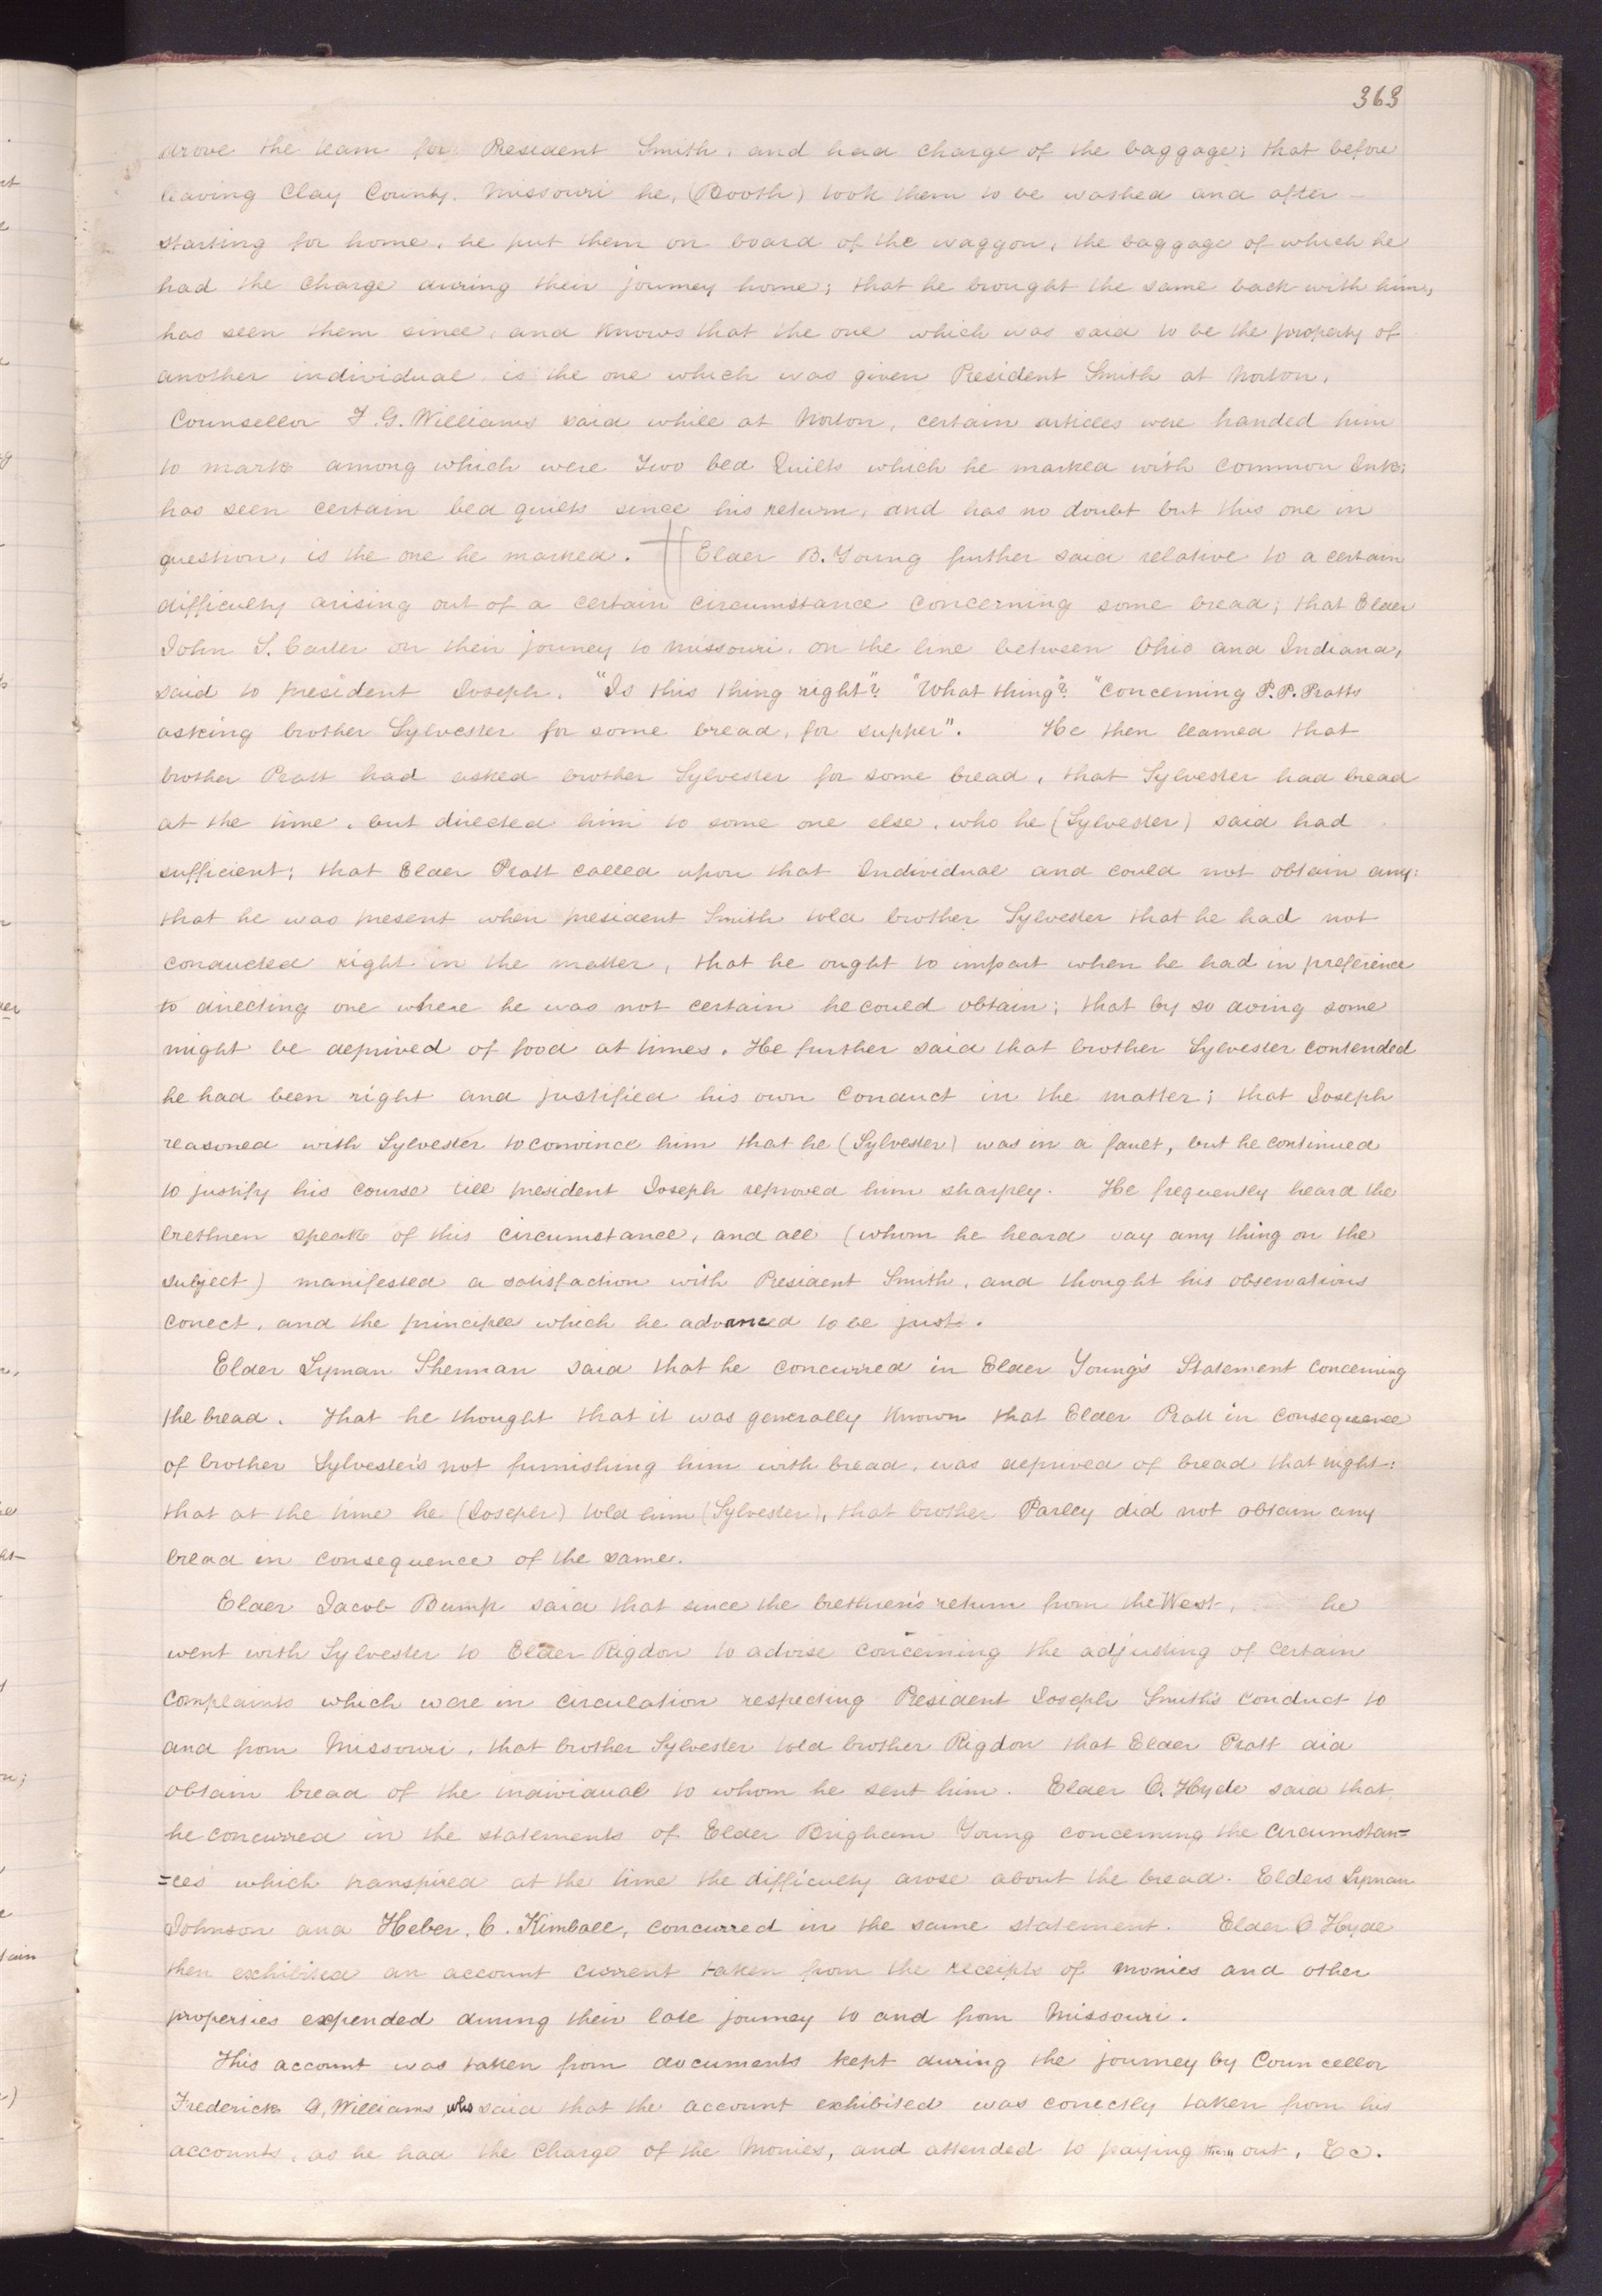 363
drove the team for President Smith, and had charge of the baggage; that before
leaving Clay County, Missouri he, (Booth) took them to be washed and after
starting for home, he put them on board of the waggon, the baggage of which he
had the charge during their journey home; that he brought the same back with him,
has seen them since, and knows that the one which was said to be the property of
another individual, is the one which was given President Smith at Norton.
Counsellor F. G. Williams said while at Norton, certain articles were handed him
to mark among which were Two bed Quilts which he marked with common Ink;
has seen certain bed quilts since his return, and has no doubt but this one in
question, is the one he marked. Elder B. Young further said relative to a certain
difficulty arising out of a certain circumstance concerning some bread; that Elder
John S. Carter on their jouney to Missouri, on the line between Ohio and Indiana,
said to president Joseph, "Is this thing right"? "What thing"? "Concerning P. P. Pratts
asking brother Sylvester for some bread, for supper". He then learned that
brother Pratt had asked brother Sylvester for some bread, that Sylvester had bread
at the time, but directed him to some one else, who he (Sylvester) said had
sufficient; that Elder Pratt called upon that Individual and could not obtain any:
that he was present when president Smith told brother Sylvester that he had not
conducted right in the matter, that he ought to impart when he had in preference
to directing one where he was not certain he could obtain; that by so doing some
might be deprived of food at times. He further said that brother Sylvester contended
he had been right and justified his own conduct in the matter; that Joseph
reasoned with Sylvester to convince him that he (Sylvester) was in a fault, but he continued
to justify his course till president Joseph reproved him sharply. He frequently heard the
brethren speak of this circumstance, and all (whom he heard say any thing on the
subject) manifested a satisfaction with President Smith, and thought his observations
correct, and the principle which he advanced to be just.
Elder Lyman Sherman said that he concurred in Elder Young's Statement concerning
the bread. That he thought that it was generally known that Elder Pratt in consequence
of brother Sylvester's not furnishing him with bread, was deprived of bread that night:
that at the time he (Joseph) told him (Sylvester), that brother Parley did not obtain any
bread in consequence of the same.
Elder Jacob Bump said that since the brethren's return from the West, he
went with Sylvester to Elder Rigdon to advise concerning the adjusting of certain
complaints which were in circulation respecting President Joseph Smith's conduct to
and from Missouri, that brother Sylvester told brother Rigdon that Elder Pratt did
obtain bread of the individual to whom he sent him. Elder O. Hyde said that
he concurred in the statements of Elder Brigham Young concerning the circumstan=
=ces which transpired at the time the difficulty arose about the bread. Elders Lyman
Johnson and Heber. C. Kimball, concurred in the same statement. Elder O Hyde
then exhibited an account current taken from the receipts of monies and other
properties expended during their late journey to and from Missouri.
This account was taken from documents kept during the journey by Councellor
Frederick G. Williams who said that the account exhibited was correctly taken from his
accounts, as he had the charge of the Monies, and attended to paying them out, &c.